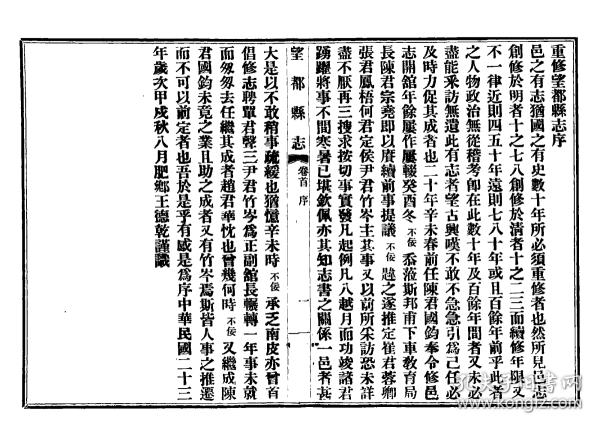 重修望都縣志序
邑之有志猶國之有史數十年所必須重修者也然所見邑志
創修於明者十之七八創修於清者十之二三而續修年限又
不一律近則四五十年遠則七八十年或且百餘年前乎此者
之人物政治無從稽考卽在此數十年及百餘年間者又未必
盡能采訪無遺此有志者望古興嘆不敢不急急引爲己任必
及時力促其成者也二十年辛未春前任陳君國鈞奉令修邑
志開舘年餘屢作屢輟癸酉冬不佞忝蒞斯邦甫下車教育局
長陳君宗堯卽以賡續前事提議不佞韙之遂推定崔君蓉卿
張君鳳梧何君定侯尹君竹岑主其事又以前所采訪恐未詳
盡不厭再三搜求按切事實發凡起例凡八越月而功竣諸君
踴躍將事不間寒暑已堪欽佩亦其知志書之關係一邑者甚
望都縣志
卷首 序
一
大是以不敢稍事疏緩也猶憶辛未時不佞承乏南皮亦曾首
倡修志聘單君聲三尹君竹岑爲正副舘長輾轉一年事未就
而匆匆去任繼其成者趙君華忱也曾幾何時不佞又繼成陳
君國鈞未竟之業且助之成者又有竹岑焉斯皆人事之推遷
而不可以前定者也吾於是乎有感是爲序中華民國二十三
年歲次甲戌秋八月肥鄉王德乾謹識
孔夫子旧书网
www.kongfz.com